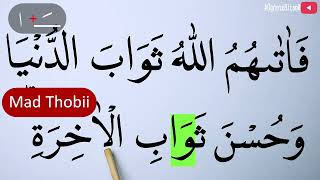 فَاٰتٰىهُمُ اللّٰهُ ثَوَابَ الدُّنْيَا
Mad Thobii
وَحُسْنَ ثَوَابِ الْاٰخِرَةِ